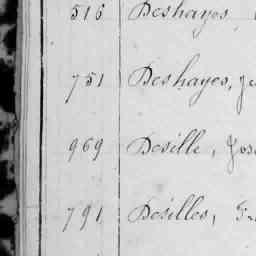 516 Deshayes,
751 Deshayes, Je
969 Deville, Jos
791 Désilles, Fr